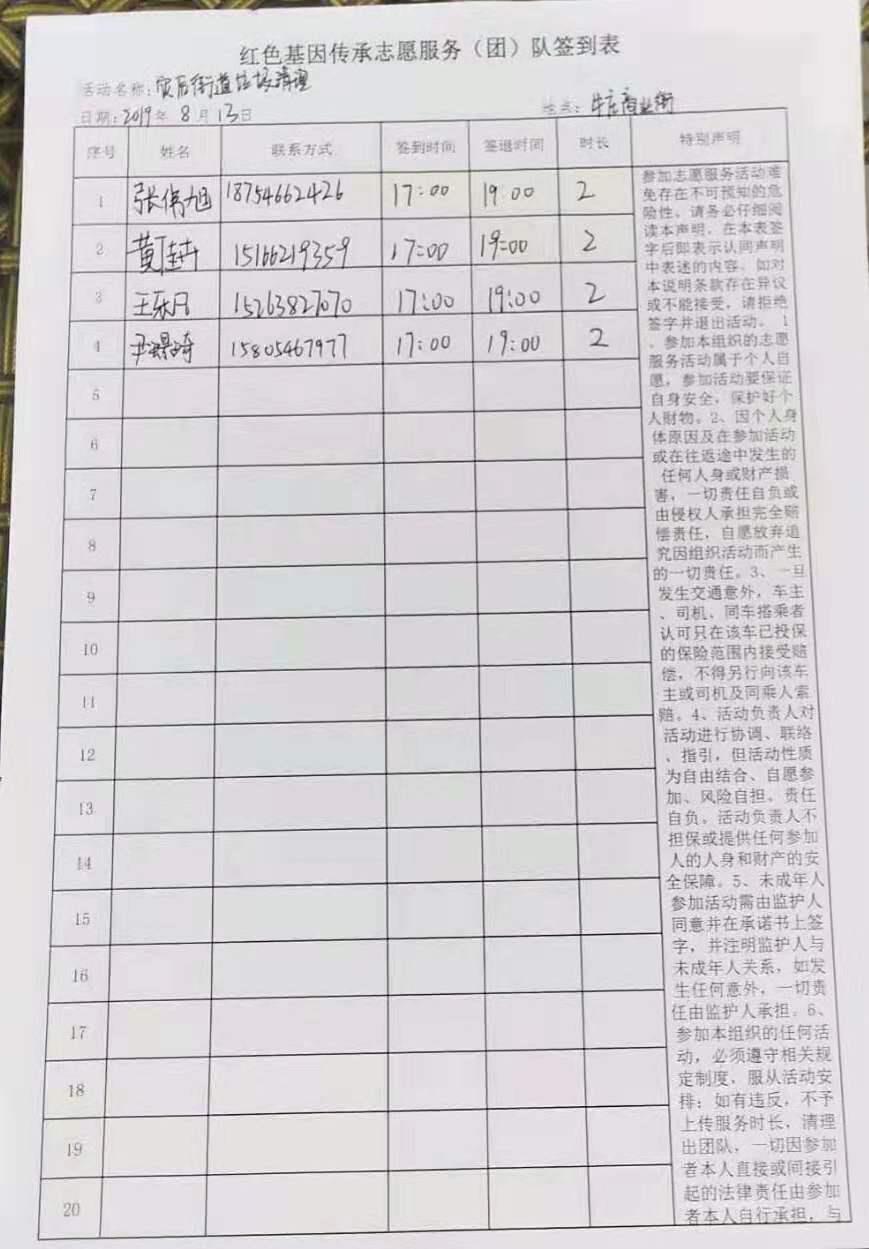 红色基因传承志愿服务（团）队签到表
活动名称：街道垃圾清理
日期：2019年 8月13日 地点：牛庄商业街
序号 姓名 联系方式 签到时间 签退时间 时长 特别声明
1 张伟旭 18754662426 17:00 19:00 2
2 黄 15166219359 17:00 19:00 2
3 王乐凡 15263827070 17:00 19:00 2
4 尹 15805467977 17:00 19:00 2
5
6
7
8
9
10
11
12
13
14
15
16
17
18
19
20
参加志愿服务活动难
免存在不可预知的危
险性，请务必仔细阅
读本声明，在本表签
字后即表示认同声明
中表述的内容。如对
本说明条款存在异议
或不能接受，请拒绝
签字并退出活动。 1
、参加本组织的志愿
服务活动属于个人自
愿，参加活动要保证
自身安全，保护好个
人财物。2、因个人身
体原因及在参加活动
或在往返途中发生的
任何人身或财产损
害，一切责任自负或
由侵权人承担完全赔
偿责任，自愿放弃追
究因组织活动而产生
的一切责任。3、一旦
发生交通意外，车主
、司机、同车搭乘者
认可只在该车已投保
的保险范围内接受赔
偿，不得另行向该车
主或司机及同乘人索
赔。4、活动负责人对
活动进行协调、联络
、指引，但活动性质
为自由结合、自愿参
加、风险自担，责任
自负。活动负责人不
担保或提供任何参加
人的人身和财产的安
全保障。5、未成年人
参加活动需由监护人
同意并在承诺书上签
字，并注明监护人与
未成年人关系，如发
生任何意外，一切责
任由监护人承担。6、
参加本组织的任何活
动，必须遵守相关规
定制度，服从活动安
排；如有违反，不予
上传服务时长，清理
出团队，一切因参加
者本人直接或间接引
起的法律责任由参加
者本人自行承担，与